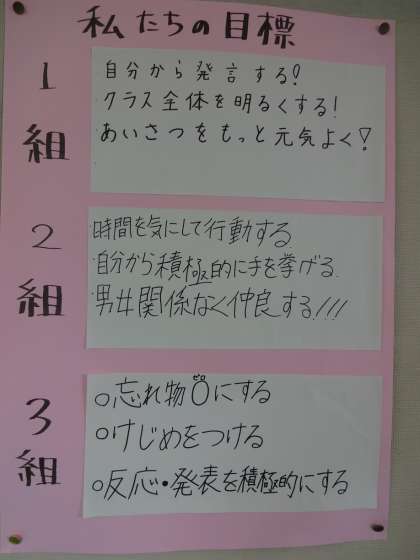 私たちの目標
1組
・自分から発言する!
・クラス全体を明るくする!
・あいさつをもっと元気よく!
2組
・時間を気にして行動する
・自分から積極的に手を挙げる.
・男女関係なく仲良する!!!
3組
○忘れ物0にする
ゼロ
○けじめをつける
○反応・発表を積極的にする